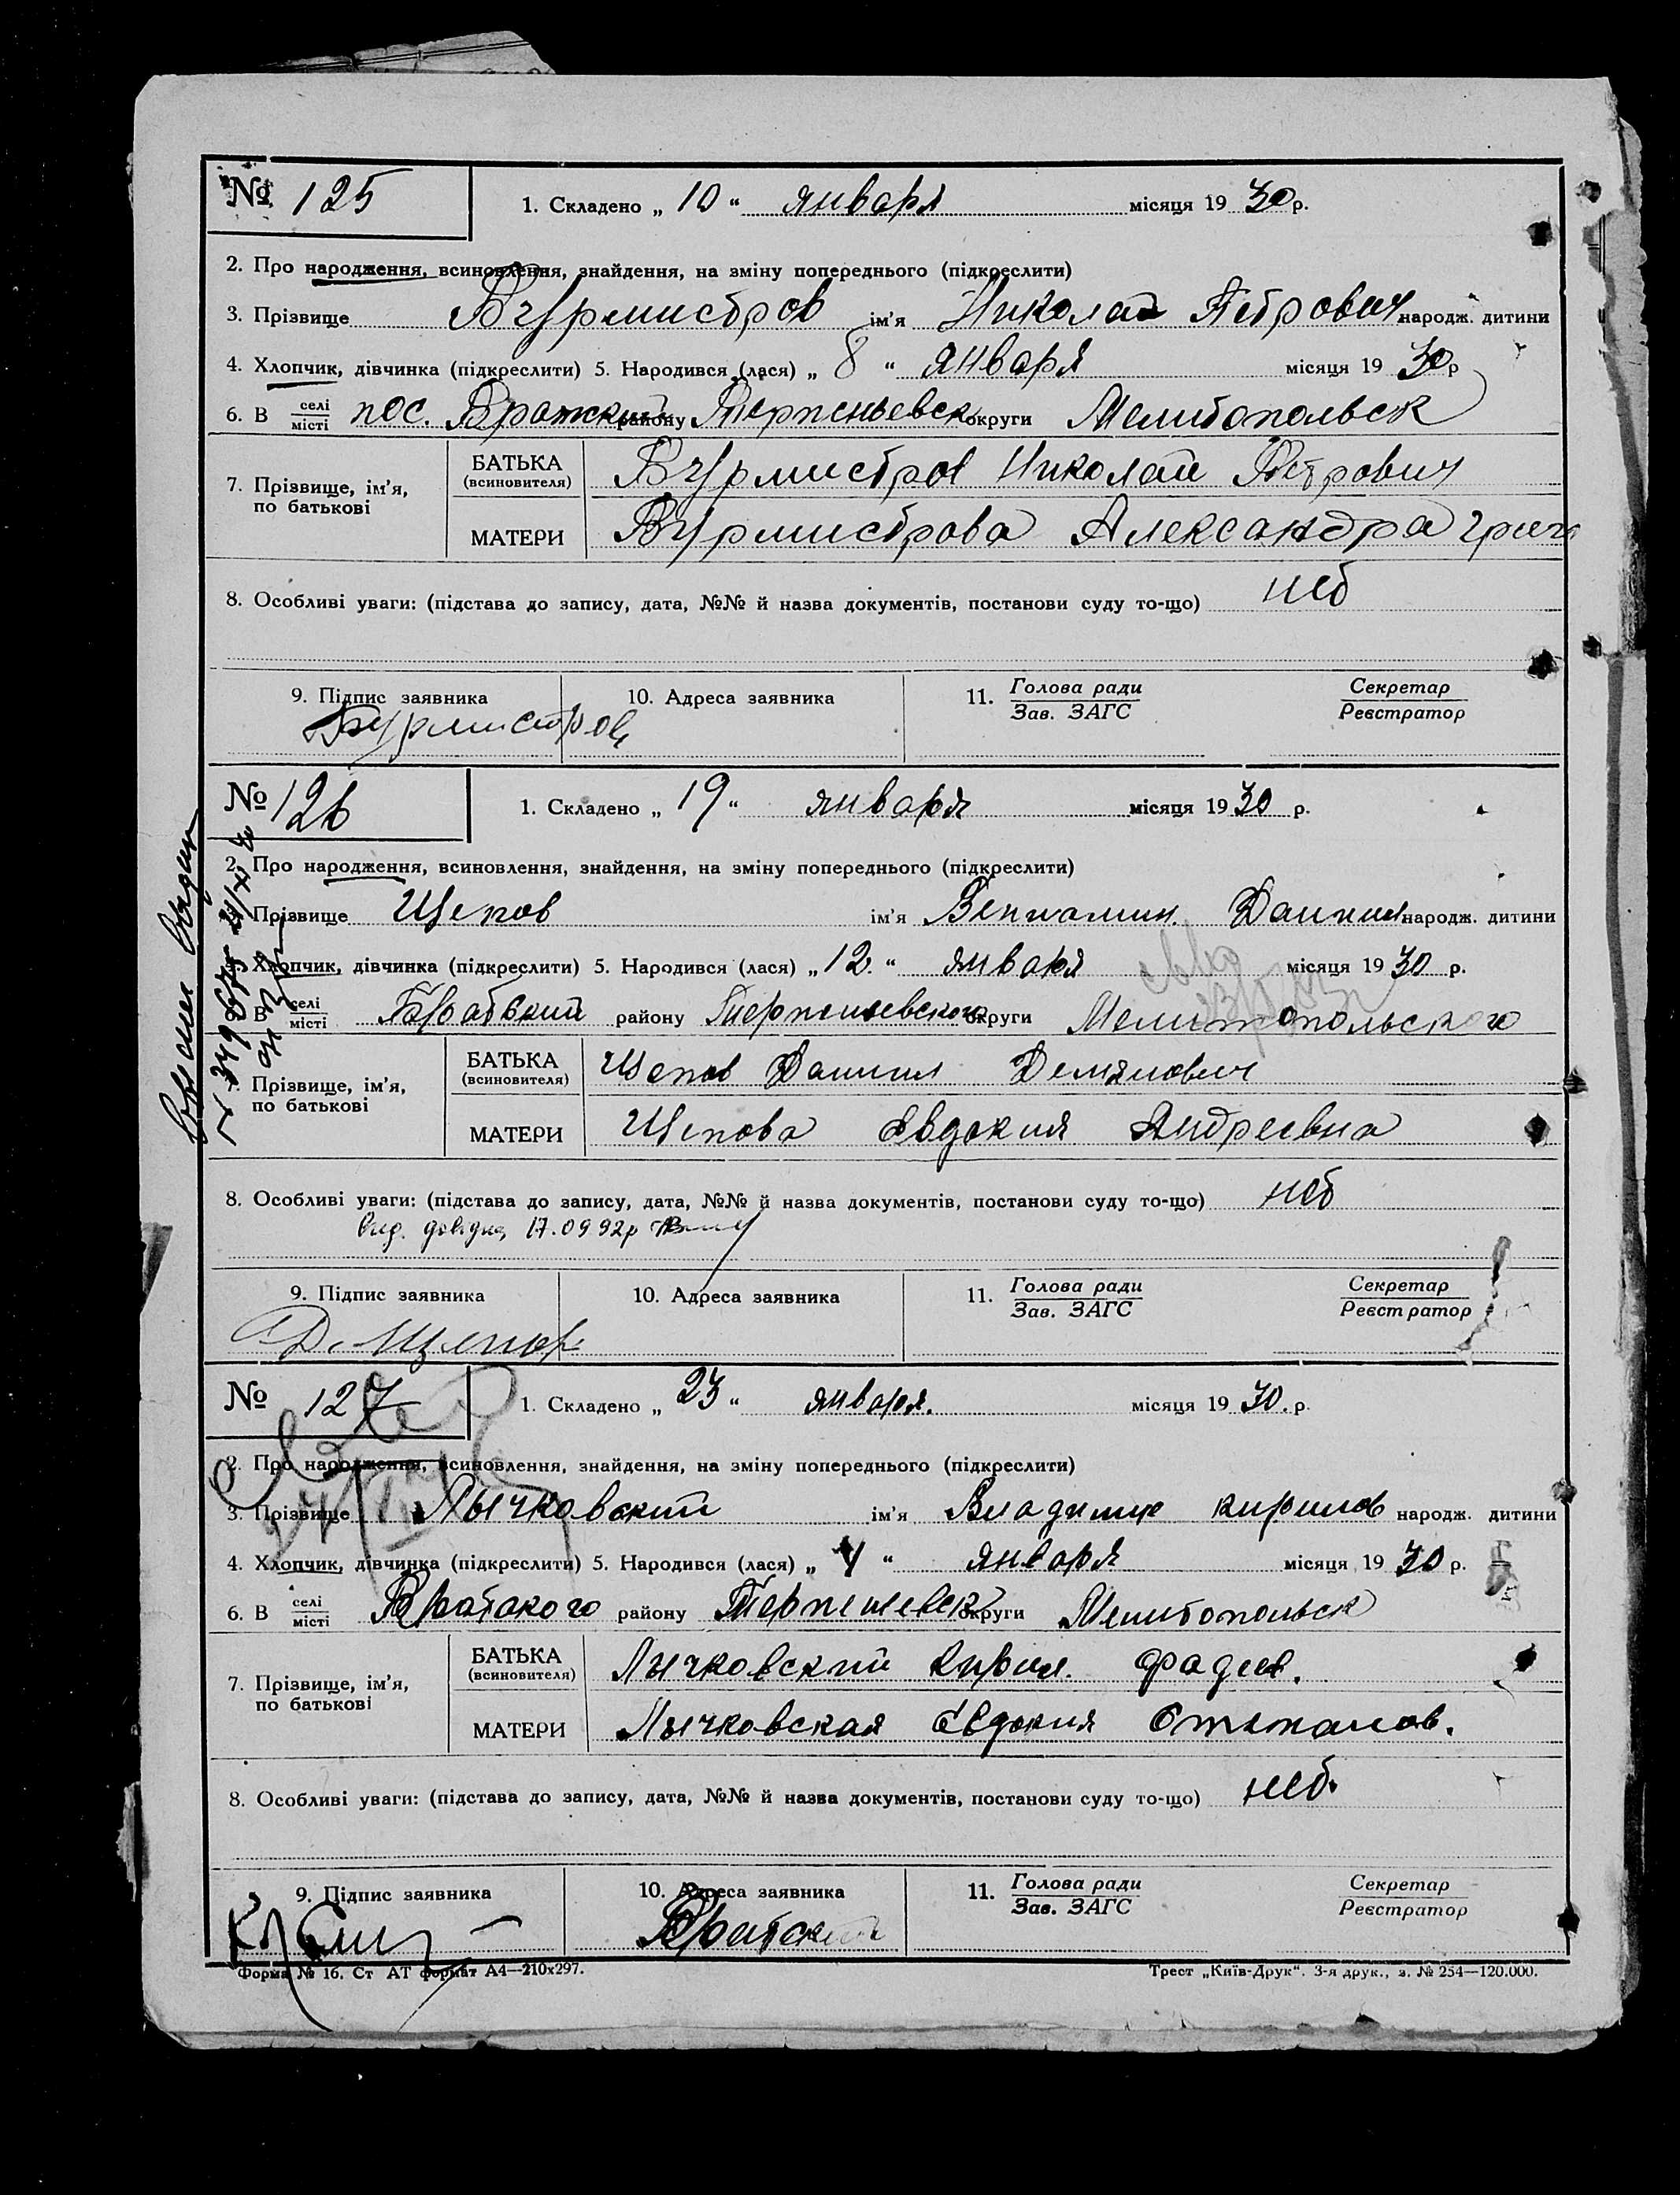 № 125
1. Складено „ 10 “ января місяця 19 30 р.
2. Про народження, всиновлення, знайдення, на зміну попереднього (підкреслити)
3. Прізвище Бурмистров ім'я Николай Петрович народж. дитини
4. Хлопчик, дівчинка (підкреслити) 5. Народився (лася) „ 8 “ января місяця 19 30 р
6. В селі/місті пос. Братский району Терпеньевск округи Мелитопольск
7. Прізвище, ім'я, по батькові
БАТЬКА (всиновителя) Бурмистров Николай Петрович
МАТЕРИ Бурмистрова Александра
8. Особливі уваги: (підстава до запису, дата, №№ й назва документів, постанови суду то-що) нет
9. Підпис заявника 10. Адреса заявника 11. Голова ради/Зав. ЗАГС Секретар/Реєстратор
Бурмистров
№ 126
1. Складено „ 19 “ января місяця 19 30 р.
2. Про народження, всиновлення, знайдення, на зміну попереднього (підкреслити)
Прізвище Щепов ім'я Вениамин. Даниил народж. дитини
Хлопчик, дівчинка (підкреслити) 5. Народився (лася) „ 12. “ января місяця 19 30 р.
В селі/місті Братский району Терпеньевского округи Мелитопольского
7. Прізвище, ім'я, по батькові
БАТЬКА (всиновителя) Щепов Даниил Демянович
МАТЕРИ Щепова Евдокия Андреевна
8. Особливі уваги: (підстава до запису, дата, №№ й назва документів, постанови суду то-що) нет
17.09.92р
9. Підпис заявника 10. Адреса заявника 11. Голова ради/Зав. ЗАГС Секретар/Реєстратор
Д. Щепов
№ 127
1. Складено „ 23 “ января. місяця 19 30. р.
2. Про народження, всиновлення, знайдення, на зміну попереднього (підкреслити)
3. Прізвище Лычковский ім'я Владимир кирилов народж. дитини
4. Хлопчик, дівчинка (підкреслити) 5. Народився (лася) „ 4 “ января місяця 19 30 р.
6. В селі/місті Братского району округи Мелитопольск
7. Прізвище, ім'я, по батькові
БАТЬКА (всиновителя) Лычковский Кирил. Фадеев.
МАТЕРИ Лычковская Евдокия
8. Особливі уваги: (підстава до запису, дата, №№ й назва документів, постанови суду то-що) нет.
9. Підпис заявника 10. Адреса заявника 11. Голова ради/Зав. ЗАГС Секретар/Реєстратор
Братский
Форма № 16. Ст АТ формат А4—210х297. Трест „Київ-Друк“. 3-я друк., з. № 254—120.000.